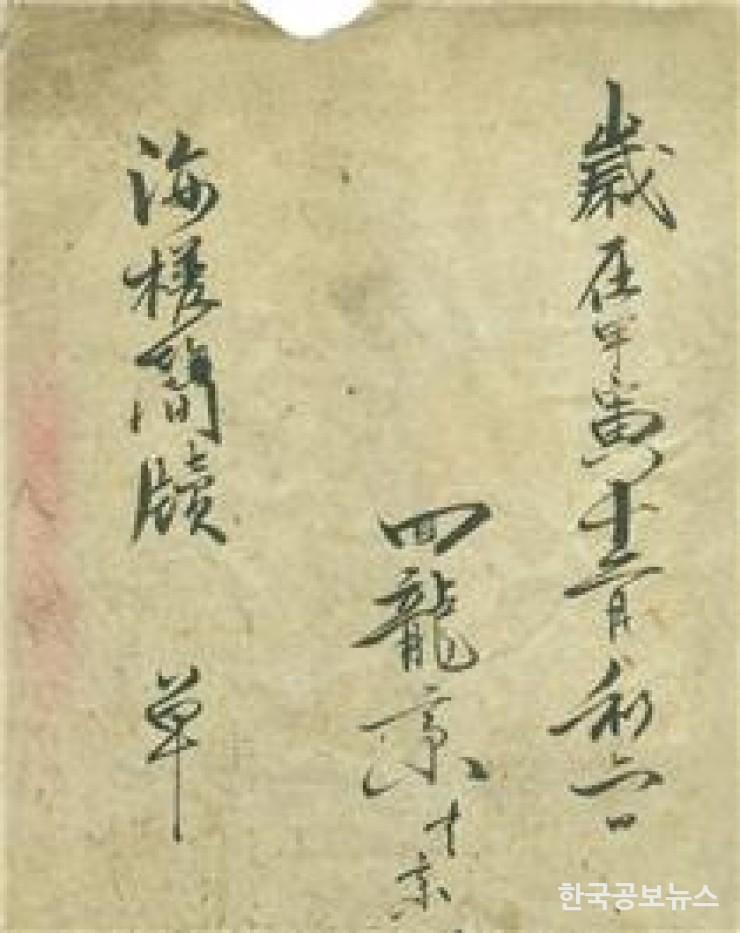 歲在甲寅十二月初六日
四龍亭十景
海槎簡牘 單
한국공보뉴스